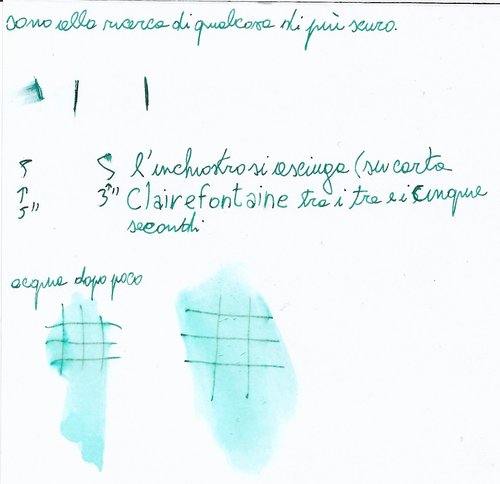 sono alla ricerca di qualcosa di più scuro.
5 5 l'inchiostro si asciuga (su carta
↑ 3" Clairefontaine tra i tre e i cinque
5" secondi
acqua dopo poco